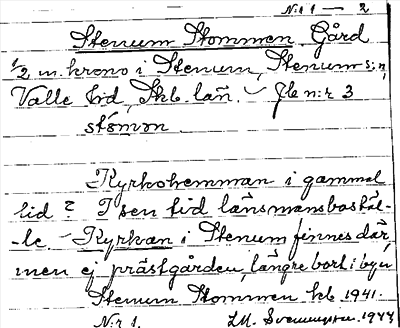 Nr 1 — 2
Stenum Stommen Gård
1/2 m. krono i Stenum, Stenum s:n,
Valle tid, Skb. län. Jb n:r 3
stómən
Kyrkohemman i gammal
tid? I sen tid länsmansbostäl-
le. - Kyrkan i Stenum finnes där,
men ej prästgården, längre bort i byn
Stenum Stommen kb 1941.
Nr 1.